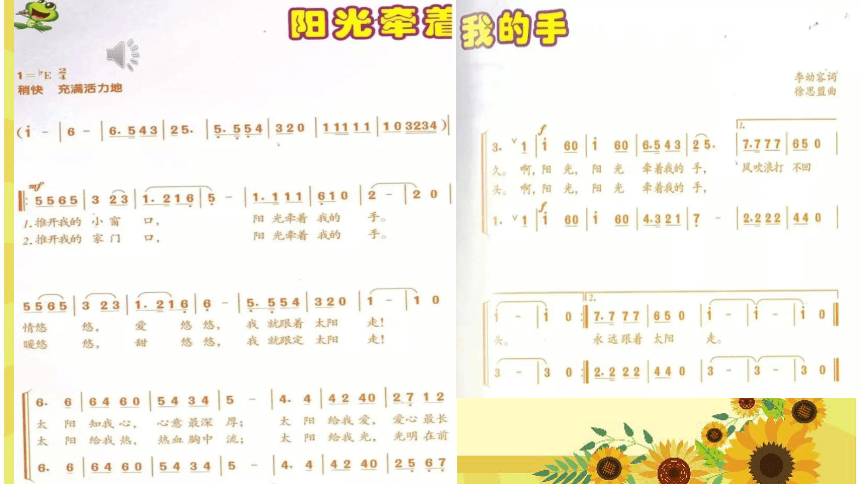 阳光牵着我的手
1=♭E 2/4
稍快 充满活力地
李幼容词
徐思盟曲
(i - | 6 - | 6. 5 4 3 | 2 5. | 5. 5 5 4 | 3 2 0 | 1 1 1 1 1 | 1 0 3 2 3 4)
mf
5 5 6 5 | 3 2 3 | 1. 2 1 6 | 5 - | 1. 1 1 1 | 6 1 0 | 2 - | 2 0
1.推开我的 小 窗 口, 阳 光牵着 我的 手。
2.推开我的 家 门 口, 阳 光牵着 我的 手。
5 5 6 5 | 3 2 3 | 1. 2 1 6 | 6 - | 5. 5 5 4 | 3 2 0 | 1 - | 1 0
情悠 悠, 爱 悠 悠, 我 就跟着 太阳 走!
暖悠 悠, 甜 悠 悠, 我 就跟定 太阳 走!
6. 6 | 6 4 6 0 | 5 4 3 4 | 5 - | 4. 4 | 4 2 4 0 | 2 7 1 2
太 阳 知我心, 心意最深 厚; 太 阳 给我爱, 爱心最长
太 阳 给我热, 热血胸中 流; 太 阳 给我光, 光明在前
6. 6 | 6 4 6 0 | 5 4 3 4 | 5 - | 4. 4 | 4 2 4 0 | 2 5 6 7
f 1.
3. V 1 | i 6 0 | i 6 0 | 6. 5 4 3 | 2 5. | 7. 7 7 7 | 6 5 0
久。 啊, 阳 光, 阳 光 牵着我的 手, 风吹浪打 不回
头。 啊, 阳 光, 阳 光 牵着我的 手,
f
1. V 1 | i 6 0 | i 6 0 | 4. 3 2 1 | 7 - | 2. 2 2 2 | 4 4 0
2.
i - | i 0 :| 7. 7 7 7 | 6 5 0 | i - | i - | i 0
头。 永远跟着 太阳 走。
3 - | 3 0 :| 2. 2 2 2 | 4 4 0 | 3 - | 3 - | 3 0